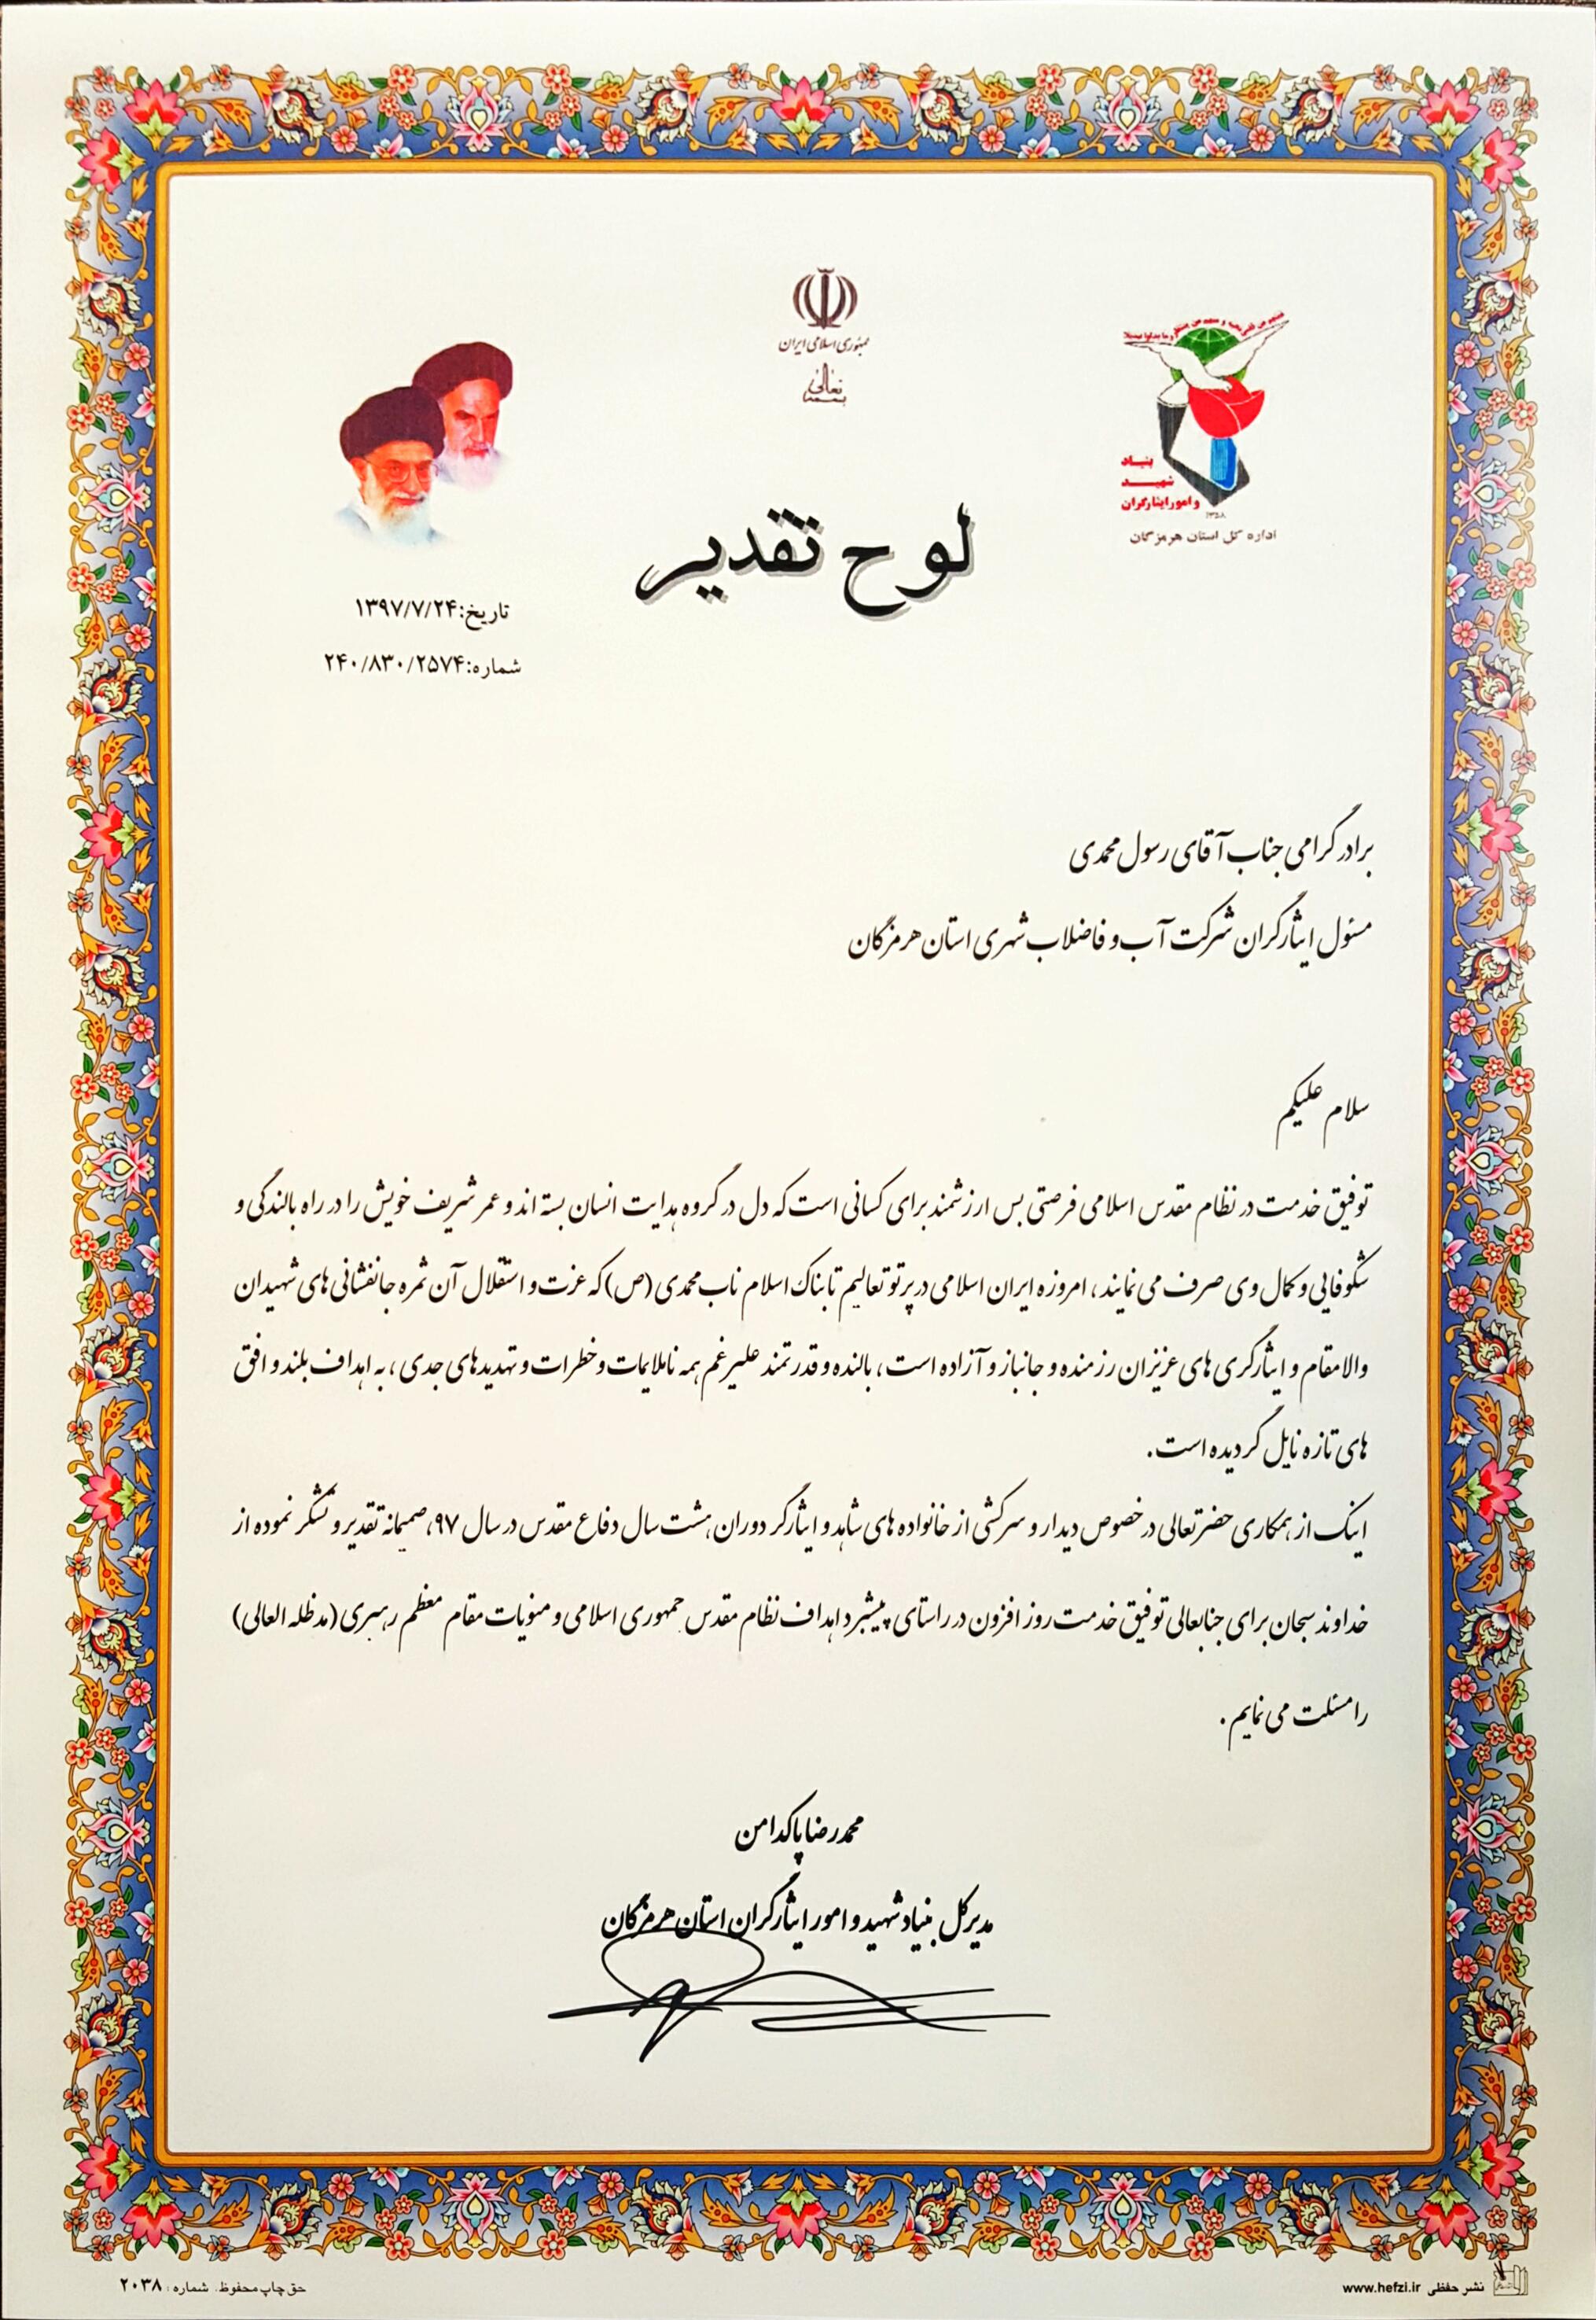 جمهوری اسلامی ایران
بسمه تعالی
بنیاد
شهید
و امور ایثارگران
۱۳۵۸
اداره کل استان هرمزگان
لوح تقدیر
تاریخ:۱۳۹۷/۷/۲۴
شماره:۲۴۰/۸۳۰/۲۵۷۴
برادر گرامی جناب آقای رسول محمدی
مسئول ایثارگران شرکت آب و فاضلاب شهری استان هرمزگان
سلام علیکم
توفیق خدمت در نظام مقدس اسلامی فرصتی بس ارزشمند برای کسانی است که دل در گروه هدایت انسان بسته اند و عمر شریف خویش را در راه بالندگی و
شکوفایی و کمال وی صرف می نمایند، امروزه ایران اسلامی در پرتو تعالیم تابناک اسلام ناب محمدی (ص) که عزت و استقلال آن ثمره جانفشانی های شهیدان
والامقام و ایثارگری های عزیزان رزمنده و جانباز و آزاده است، بالنده و قدرتمند علیرغم همه ناملایمات و خطرات و تهدیدهای جدی، به اهداف بلند و افق
های تازه نایل گردیده است.
اینک از همکاری حضرتعالی در خصوص دیدار و سرکشی از خانواده های شاهد و ایثارگر دوران هشت سال دفاع مقدس در سال ۹۷، صمیمانه تقدیر و تشکر نموده از
خداوند سبحان برای جنابعالی توفیق خدمت روز افزون در راستای پیشبرد اهداف نظام مقدس جمهوری اسلامی و منویات مقام معظم رهبری (مدظله العالی)
را مسئلت می نمایم.
محمدرضا پاکدامن
مدیرکل بنیاد شهید و امور ایثارگران استان هرمزگان
حق چاپ محفوظ. شماره: ۲۰۳۸
نشر حفظی www.hefzi.ir